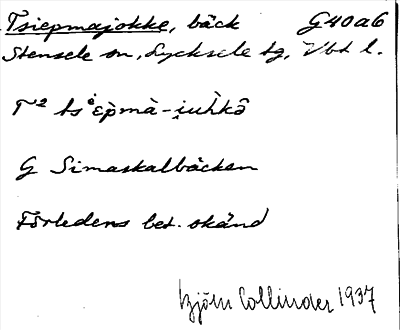 Tsiepmajokke, bäck G40a6
Stensele sn, Lycksele tg, Vbt l.
T² tsièpmà-i̯uhkô
G Simaskalbäcken
Förledens bet. okänd
Björn Collinder 1937